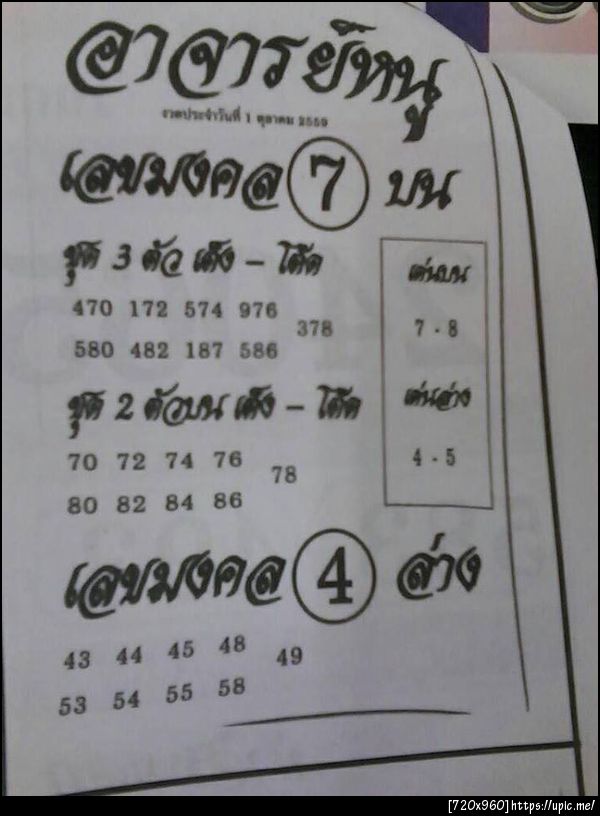 อาจารย์หนู
งวดประจำวันที่ 1 ตุลาคม 2559
เลขมงคล 7 บน
ชุด 3 ตัว เต็ง - โต๊ด
470 172 574 976
378
580 482 187 586
เด่นบน
7 - 8
ชุด 2 ตัวบน เต็ง - โต๊ด
70 72 74 76
78
80 82 84 86
เด่นล่าง
4 - 5
เลขมงคล 4 ล่าง
43 44 45 48
49
53 54 55 58
[720x960]https://upic.me/